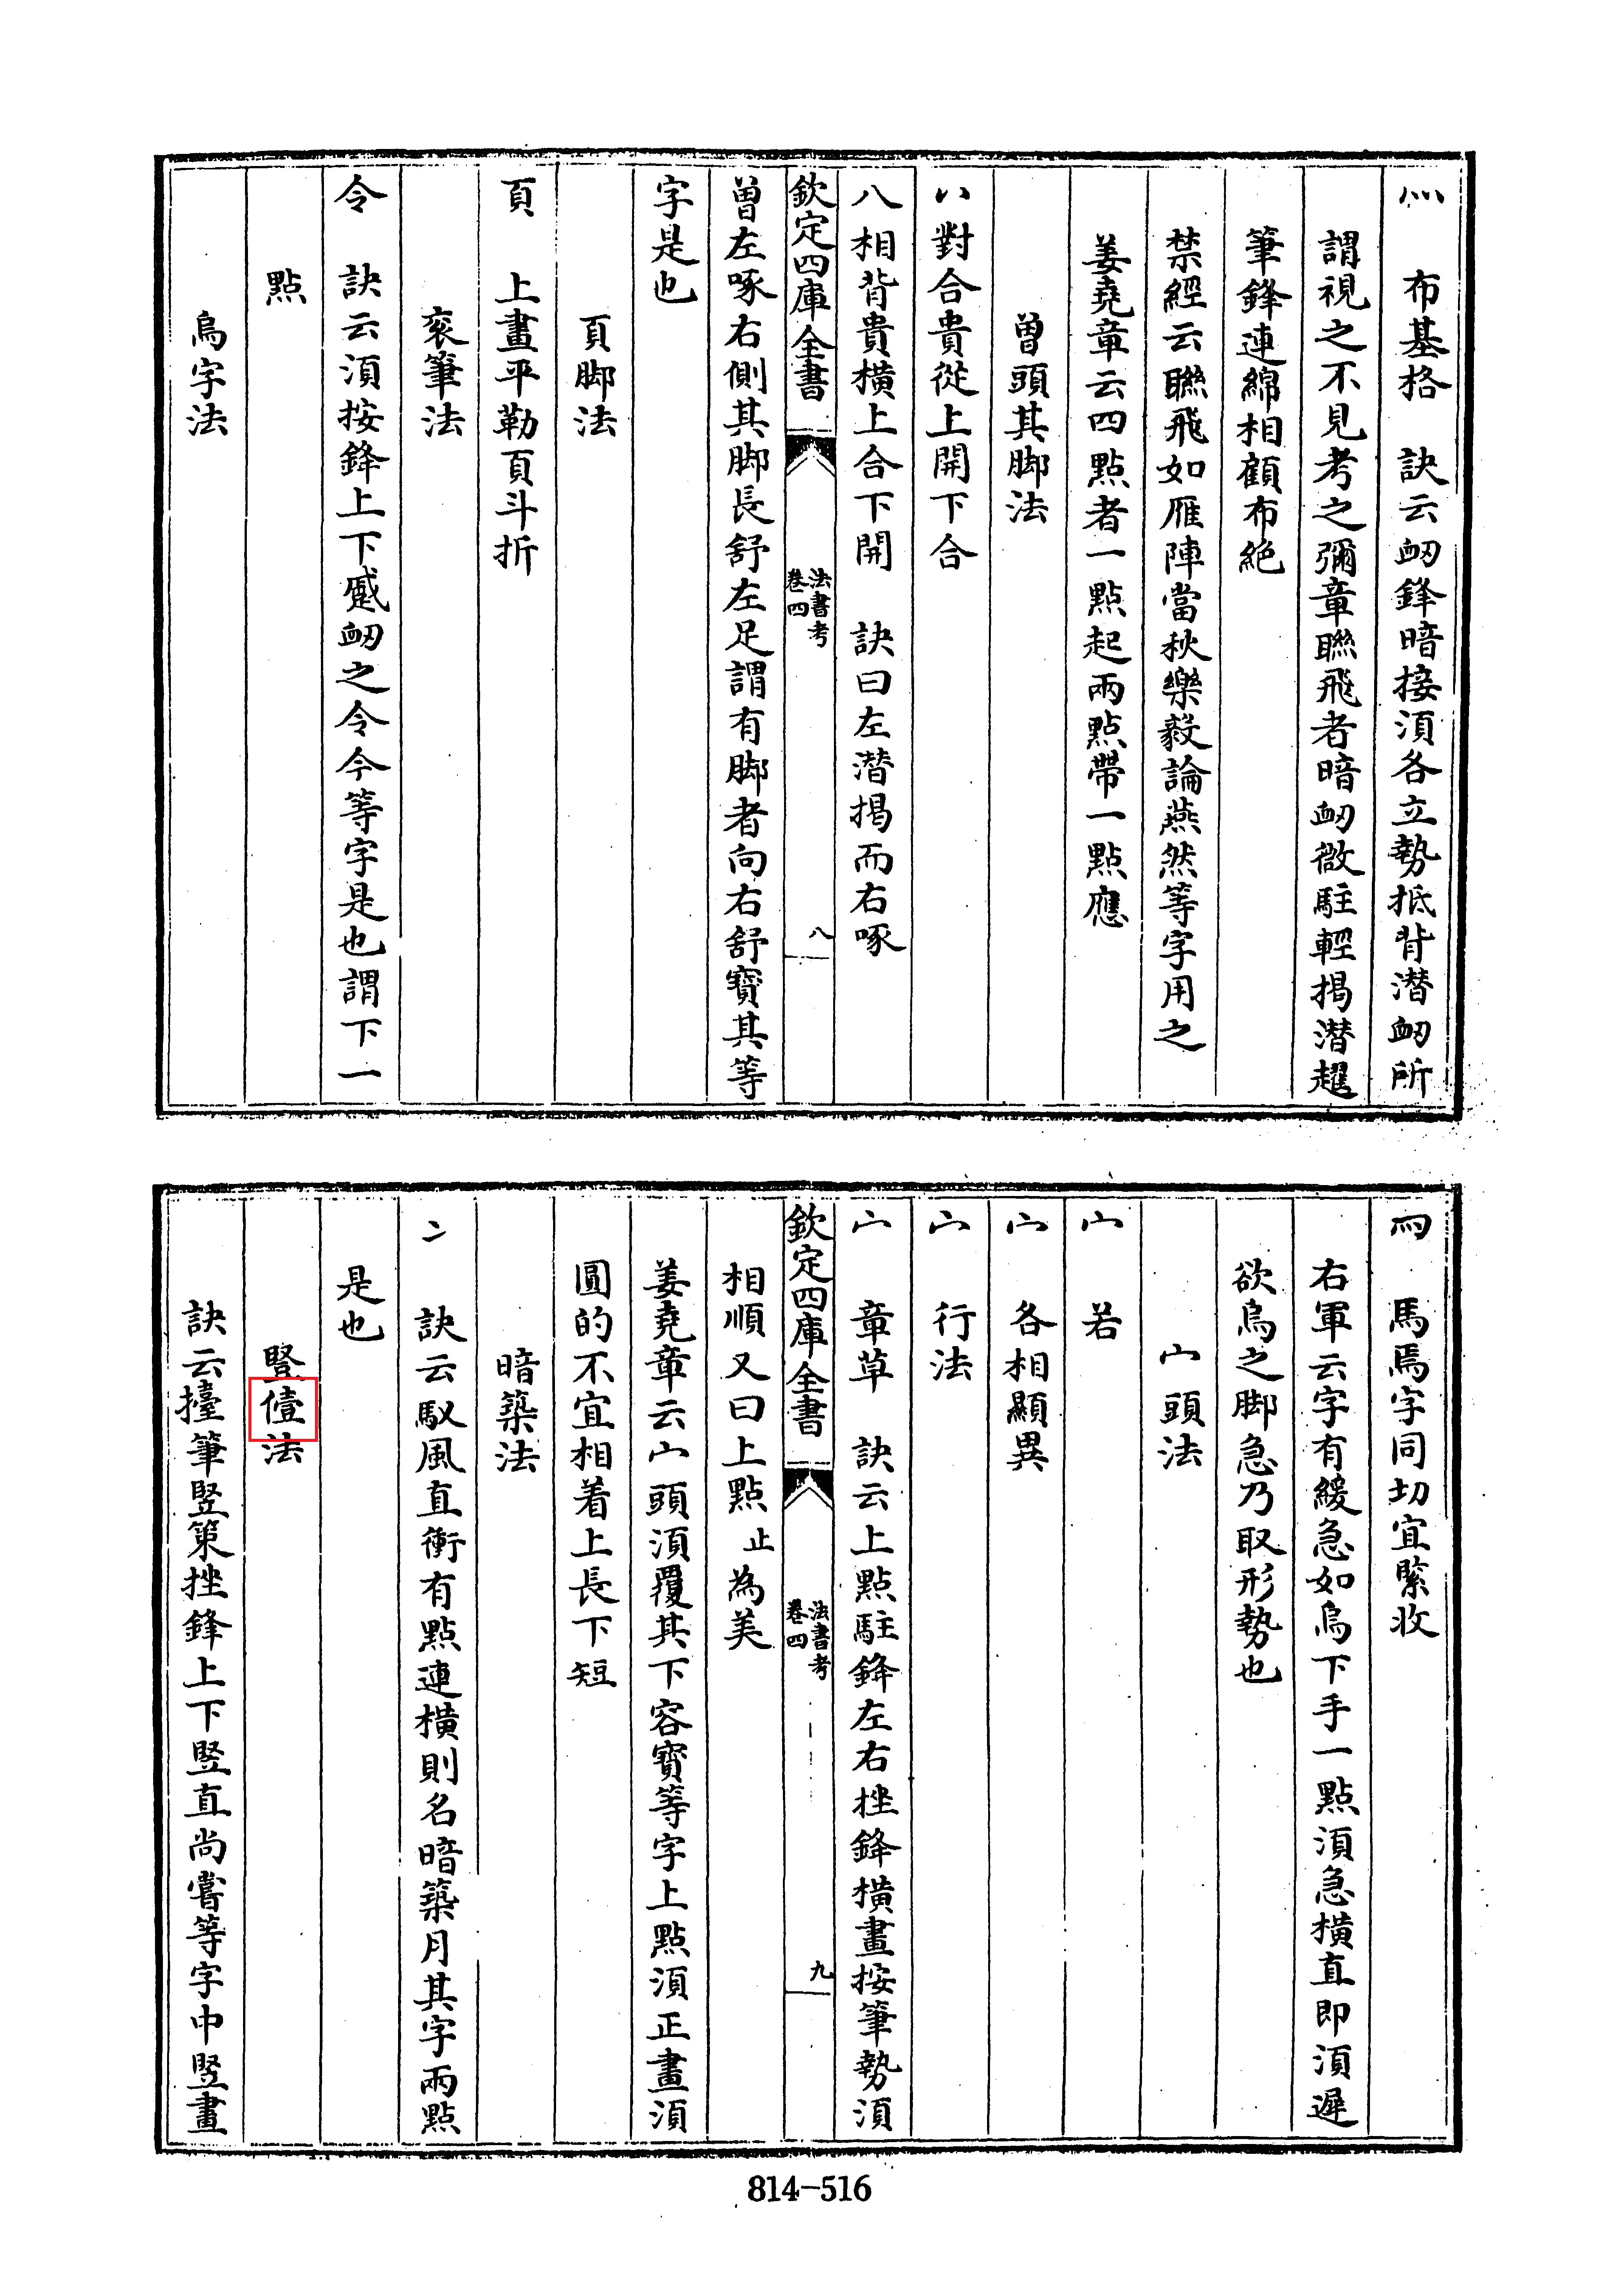 灬　布基格　訣云衂鋒暗接湏各立勢抵背潜衂所
謂視之不見考之彌章聯飛者暗衂微駐輕揭潜趯
筆鋒連綿相顧布絶
禁經云聮飛如雁陣當秋樂毅論燕然等字用之
姜堯章云四點者一點起兩點帶一點應
曽頭其脚法
丷對合貴從上開下合
八相背貴横上合下開　訣曰左潜揭而右啄
欽定四庫全書
法書考
卷四
八
曽左啄右側其脚長舒左足謂有脚者向右舒寳其等
字是也
頁脚法
頁　上畫平勒頁斗折
衮筆法
令　訣云湏按鋒上下蹙衂之令今等字是也謂下一
點
烏字法
馬焉字同切宜緊收
右軍云字有緩急如烏下手一點湏急横直即湏遲
欲烏之脚急乃取形勢也
宀頭法
宀　若
宀　各相顯異
宀　行法
宀　章草　訣云上點駐鋒左右挫鋒横畫按筆勢湏
欽定四庫全書
法書考
卷四
九
相順又曰上點止為美
姜堯章云宀頭湏覆其下容寳等字上點湏正畫湏
圓的不宜相着上長下短
暗築法
冫　訣云馭風直衝有點連横則名暗築月其字兩點
是也
竪儓法
訣云擡筆竪策挫鋒上下竪直尚嘗等字中竪畫
814-516